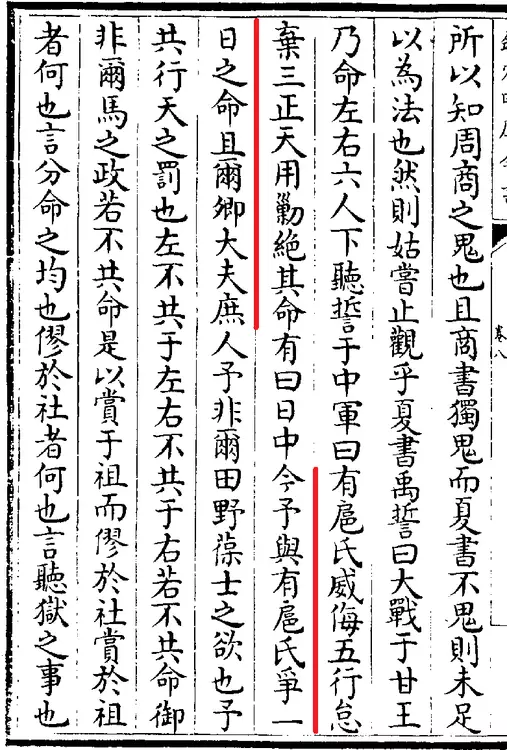 所以知周商之鬼也且商書獨鬼而夏書不鬼則未足
以為法也然則姑嘗上觀乎夏書禹誓曰大戰于甘王
乃命左右六人下聽誓于中軍曰有扈氏威侮五行怠
棄三正天用勦絶其命有曰日中今予與有扈氏爭一
日之命且爾卿大夫庶人予非爾田野葆士之欲也予
共行天之罰也左不共于左右不共于右若不共命御
非爾馬之政若不共命是以賞于祖而僇於社賞於祖
者何也言分命之均也僇於社者何也言聽獄之事也